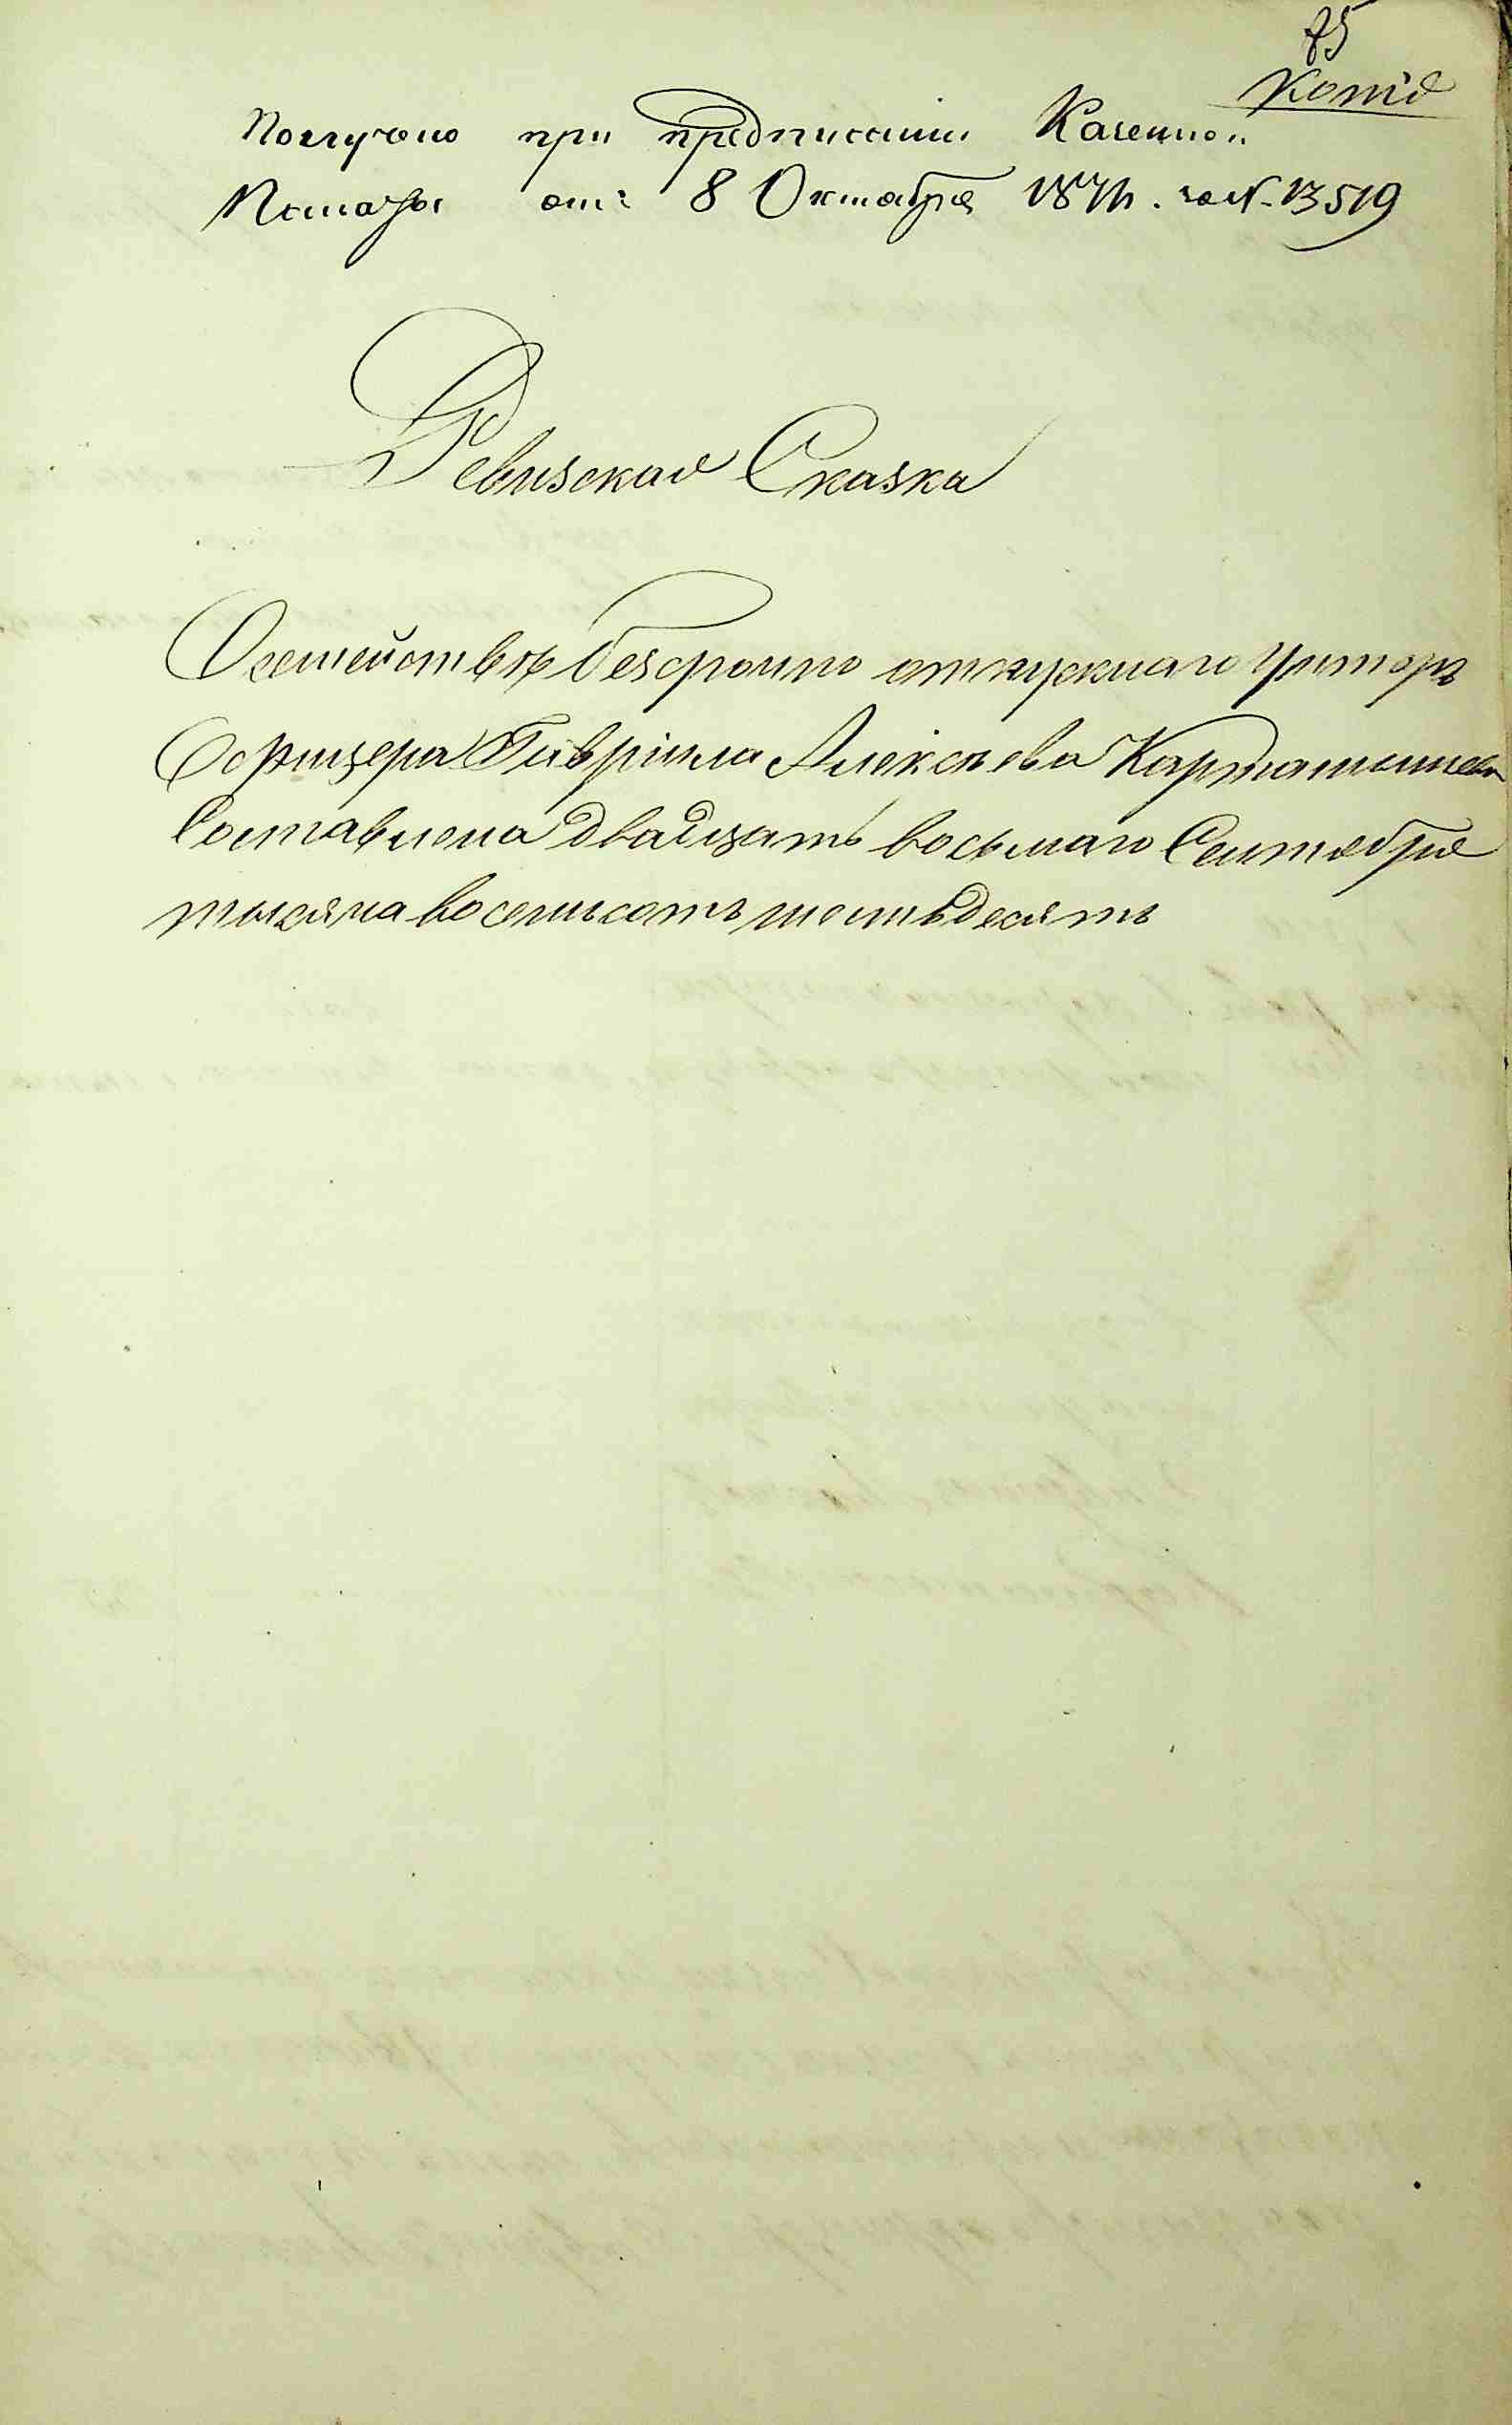 85
Копія
Получено при предписаніи Казенной
Палаты отъ 8 Октября 1871 г. за №. 13519
Ревизская Сказка
О семействѣ безсрочно отпускнаго Унтеръ
Офицера Гаврiила Алексѣева Картамышева
Составлена двадцать восьмаго Сентября
тысяча восемьсотъ шестьдесятъ